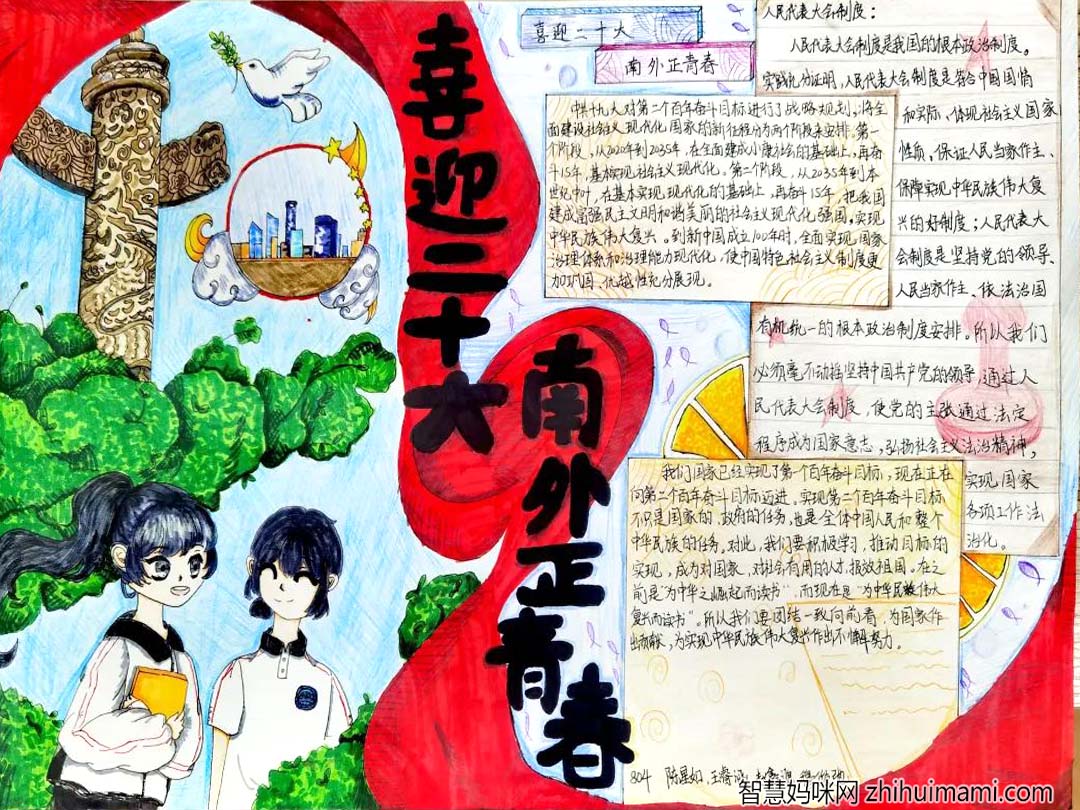 喜迎二十大
南外正青春
喜迎二十大
南外正青春
人民代表大会制度：
人民代表大会制度是我国的根本政治制度。
实践充分证明，人民代表大会制度是符合中国国情
和实际、体现社会主义国家
性质、保证人民当家作主、
保障实现中华民族伟大复
兴的好制度；人民代表大
会制度是坚持党的领导、
人民当家作主、依法治国
有机统一的根本政治制度安排。所以我们
必须毫不动摇坚持中国共产党的领导，通过人
民代表大会制度，使党的主张通过法定
程序成为国家意志，弘扬社会主义法治精神，
实现国家
各项工作法
治化。
中共十九大对第二个百年奋斗目标进行了战略规划，将全
面建设社会主义现代化国家的新征程分为两个阶段来安排。第一
个阶段，从2020年到2035年，在全面建成小康社会的基础上，再奋
斗15年，基本实现社会主义现代化。第二个阶段，从2035年到本
世纪中叶，在基本实现现代化的基础上，再奋斗15年，把我国
建成富强民主文明和谐美丽的社会主义现代化强国。实现
中华民族伟大复兴。到新中国成立100年时，全面实现国家
治理体系和治理能力现代化，使中国特色社会主义制度更
加巩固、优越性充分展现。
我们国家已经实现了第一个百年奋斗目标，现在正在
向第二个百年奋斗目标迈进。实现第二个百年奋斗目标
不只是国家的、政府的任务，也是全体中国人民和整个
中华民族的任务。对此，我们要积极学习，推动目标的
实现，成为对国家、对社会有用的人才，报效祖国。在之
前是“为中华之崛起而读书”，而现在是“为中华民族伟大
复兴而读书”。所以我们要团结一致向前看，为国家作
出贡献，为实现中华民族伟大复兴作出不懈努力。
804 陈星如 王睿
智慧妈咪网 zhihuimami.com